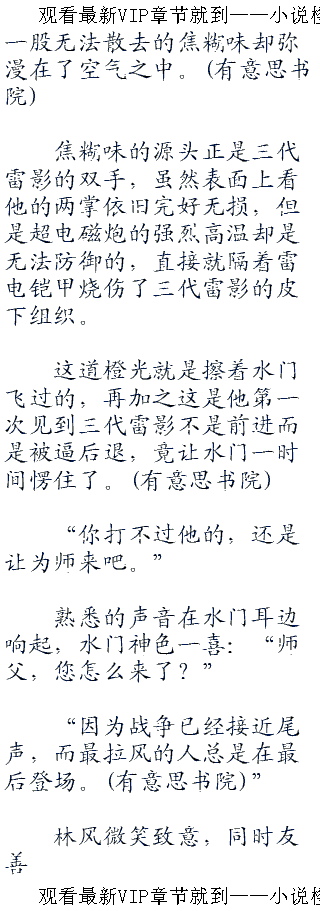 观看最新VIP章节就到——小说
一股无法散去的焦糊味却弥
漫在了空气之中。(有意思书
院)
焦糊味的源头正是三代
雷影的双手，虽然表面上看
他的两掌依旧完好无损，但
是超电磁炮的强烈高温却是
无法防御的，直接就隔着雷
电铠甲烧伤了三代雷影的皮
下组织。
这道橙光就是擦着水门
飞过的，再加之这是他第一
次见到三代雷影不是前进而
是被逼后退，竟让水门一时
间愣住了。(有意思书院)
“你打不过他的，还是
让为师来吧。”
熟悉的声音在水门耳边
响起，水门神色一喜：“师
父，您怎么来了？”
“因为战争已经接近尾
声，而最拉风的人总是在最
后登场。(有意思书院)”
林风微笑致意，同时友
善
观看最新VIP章节就到——小说